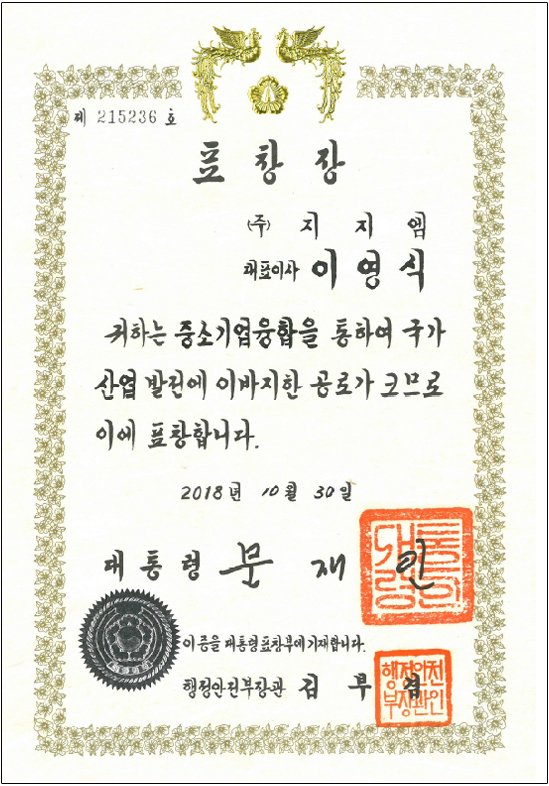 제 215236 호
표 창 장
(주) 지 지 엠
대표이사 이 영 식
귀하는 중소기업융합을 통하여 국가
산업 발전에 이바지한 공로가 크므로
이에 표창합니다.
2018년 10월 30일
대통령 문 재 인
대통령의인
이 증을 대통령표창부에 기재합니다.
행정안전부장관 김 부 겸
행정안전
부장관인